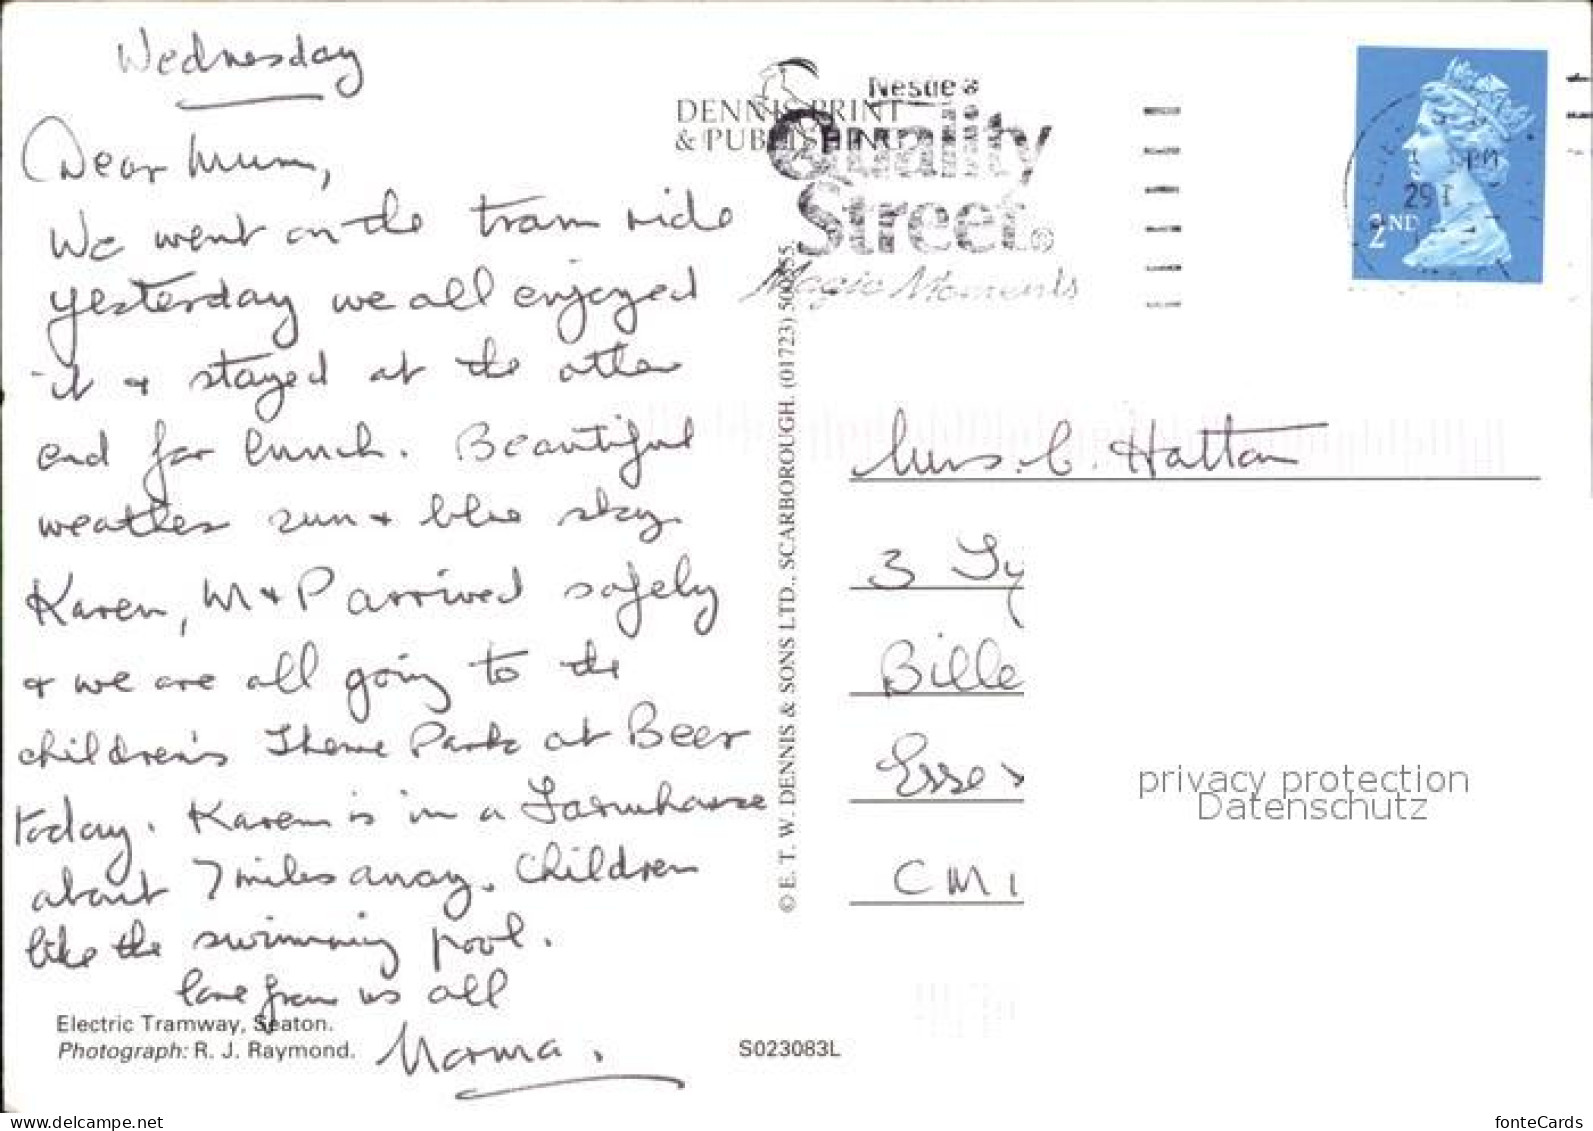 Wednesday
Dear Mum,
We went on the tram ride
yesterday we all enjoyed
it + stayed at the other
end for lunch. Beautiful
weather sun + blue sky.
Karen, M + P arrived safely
+ we are all going to the
children's Theme Park at Beer
today. Karen is in a Farmhouse
about 7 miles away. Children
like the swimming pool.
love from us all
Norma.
Electric Tramway, Seaton.
Photograph: R. J. Raymond.
S023083L
DENNIS PRINT
& PUBLISHING
© E. T. W. DENNIS & SONS LTD., SCARBOROUGH. (01723)
Quality
Street®
Magic Moments
2ND
Mrs. C. Hatton
3 Ty
Bille
Essex
CM1
privacy protection
Datenschutz
www.delcampe.net
fonteCards